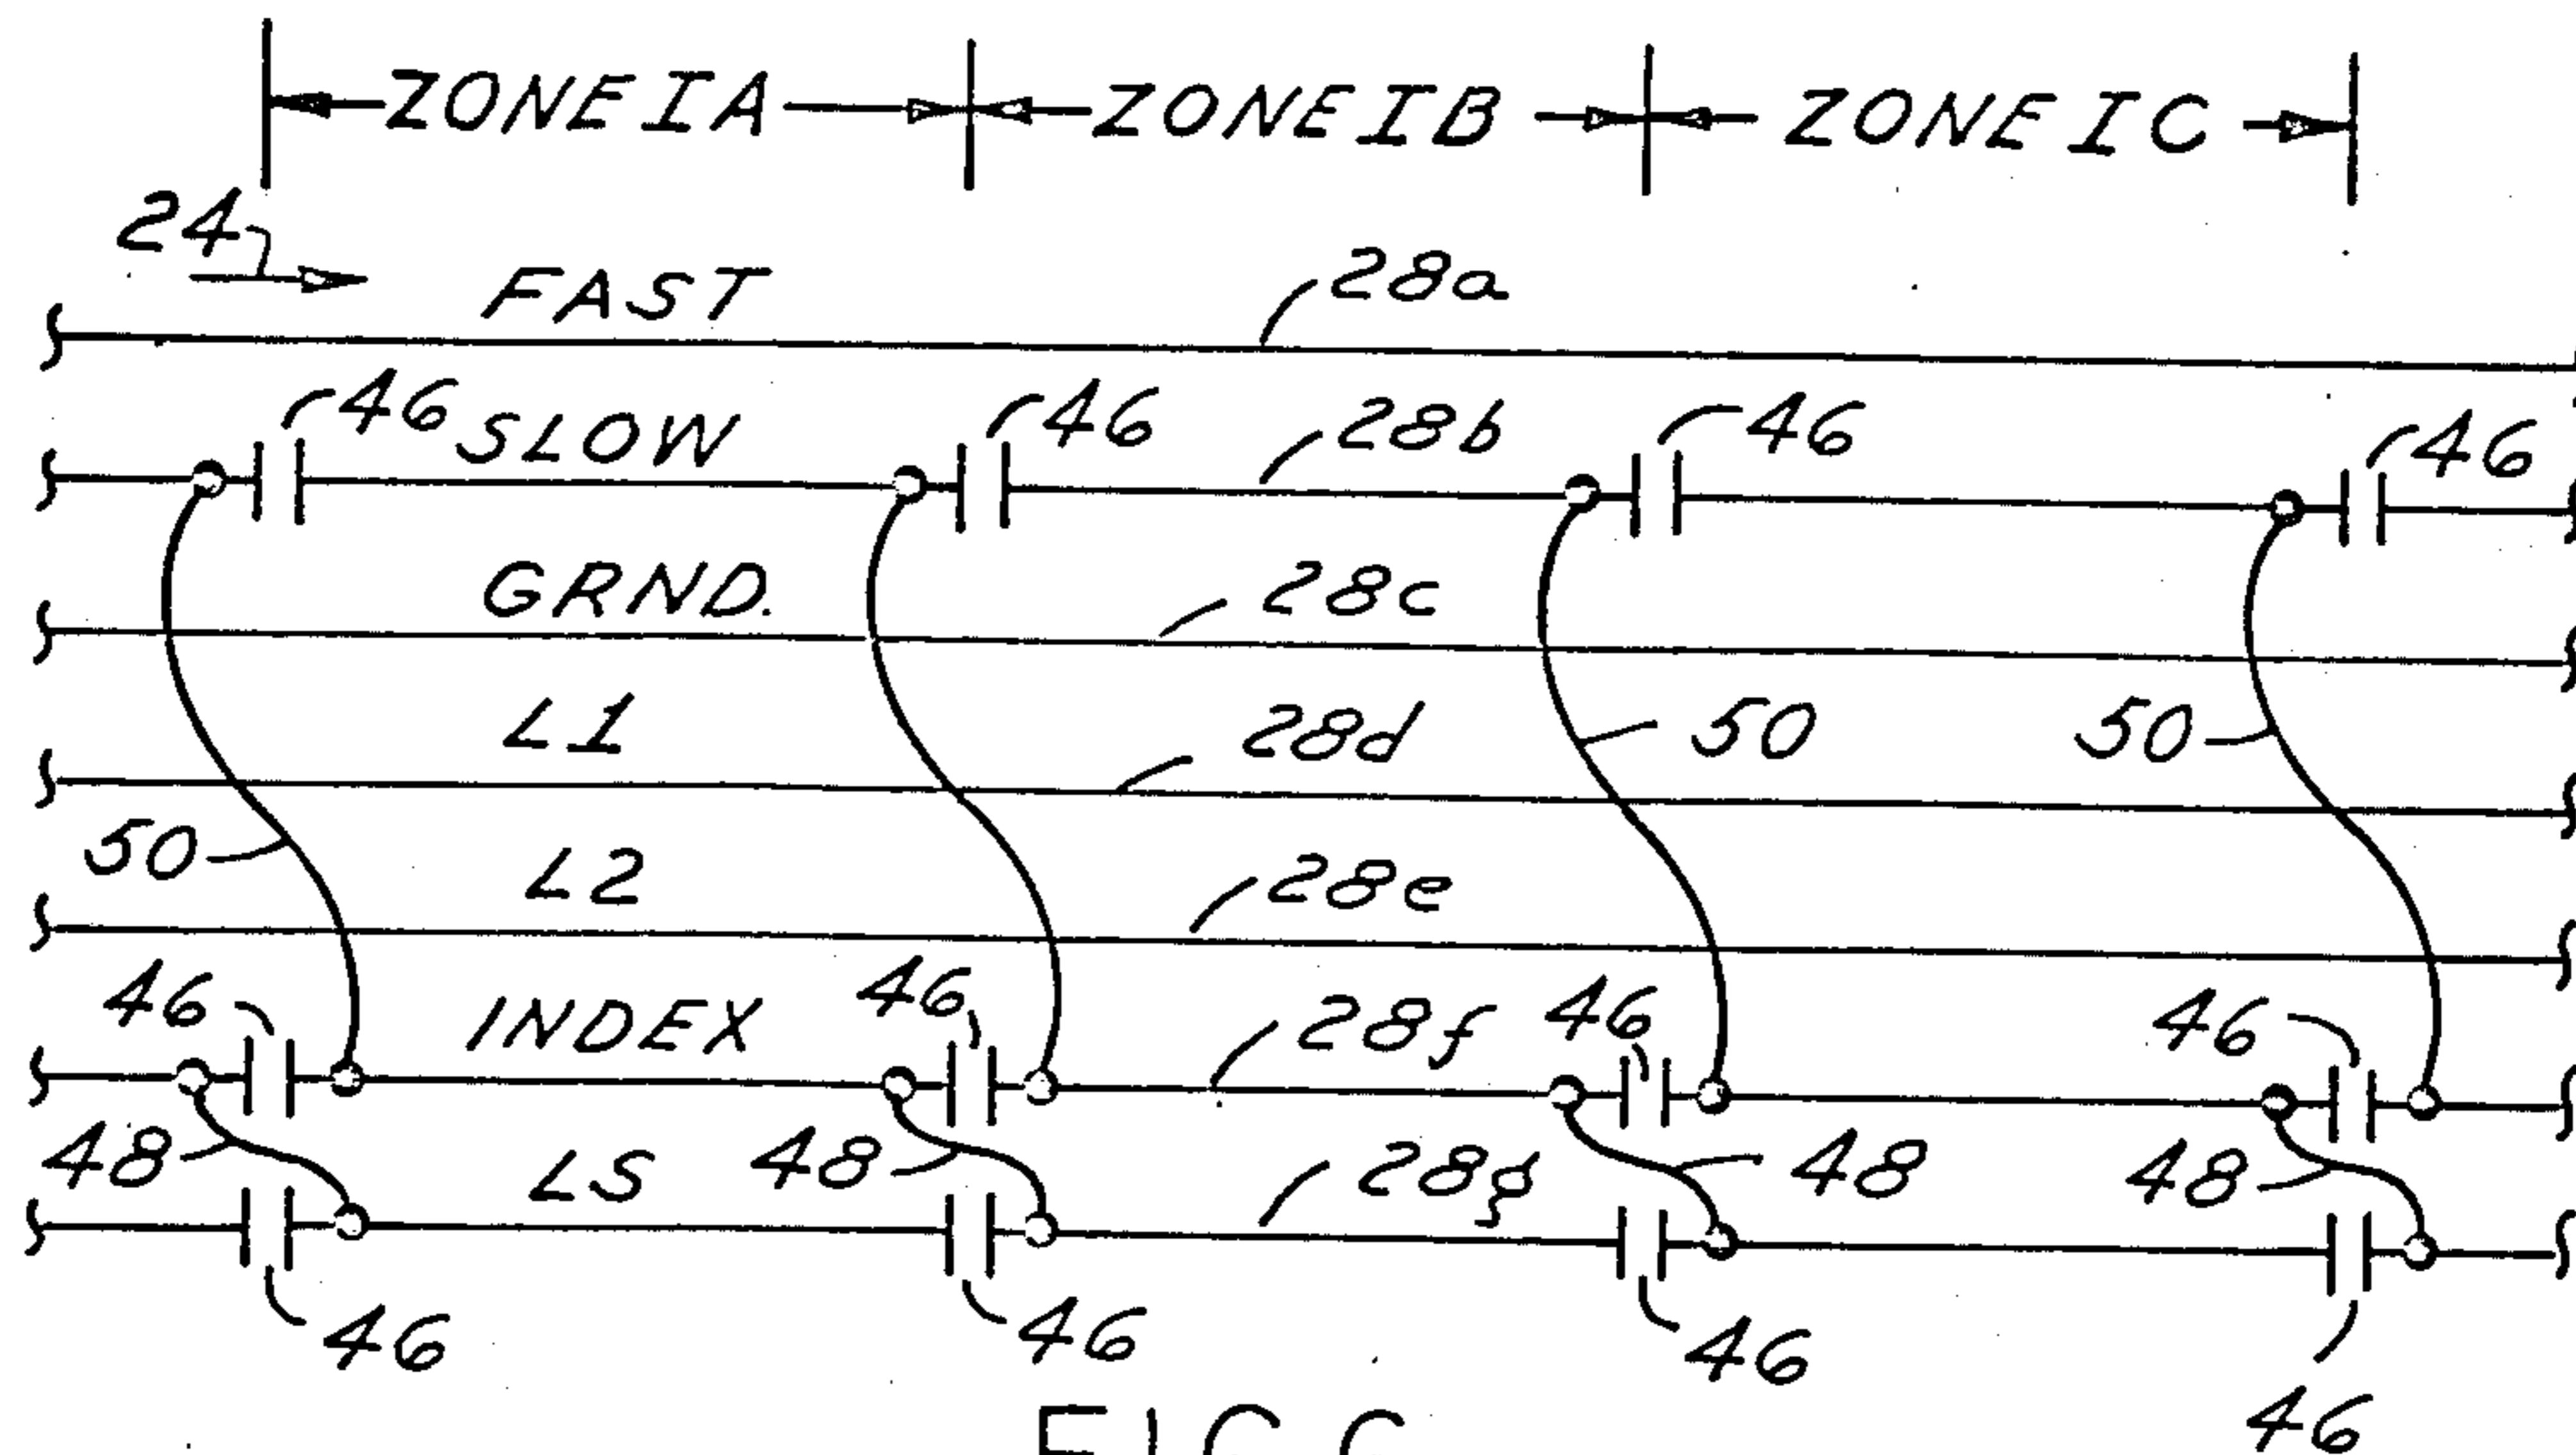 ZONE IA ZONE IB ZONE IC
24
FAST 28a
46 SLOW 46 28b 46 46
GRND. 28c
L1 28d 50 50
50 L2 28e
46 INDEX 46 28f 46 46
48 LS 48 28g 48 48
46 46 46 46